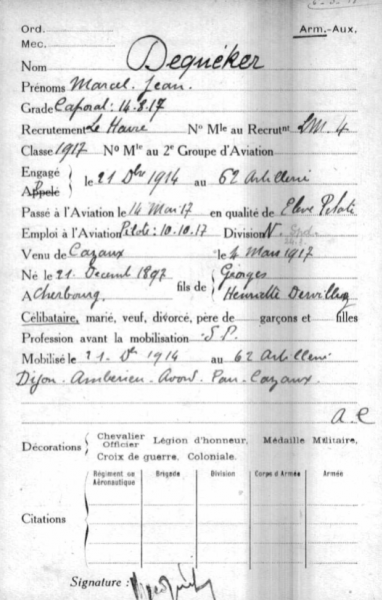 Ord. Arm.-Aux.
Mec.
Nom Dequéker
Prénoms Marcel, Jean.
Grade Caporal: 14.8.17
Recrutement Le Havre N° Mle au Recrutnt LM. 4
Classe 1917 N° Mle au 2e Groupe d'Aviation
Engagé
Appelé le 21 Dbre 1914 au 62 Artillerie
Passé à l'Aviation le 14 Mai 17 en qualité de Eleve Pilote
Emploi à l'Aviation Pilote: 10.10.17 Division N.
Venu de Cazaux le 4 Mars 1917
Né le 21. Decemb 1897 fils de Georges
A Cherbourg. Henriette
Célibataire, marié, veuf, divorcé, père de garçons et filles
Profession avant la mobilisation S.P.
Mobilisé le 21. Dbre 1914 au 62 Artillerie
Dijon. Amberieu. Avord. Pau. Cazaux.
Décorations Chevalier Officier Légion d'honneur, Médaille Militaire,
Croix de guerre, Coloniale.
Citations
Régiment ou Aéronautique Brigade Division Corps d'Armée Armée
Signature :